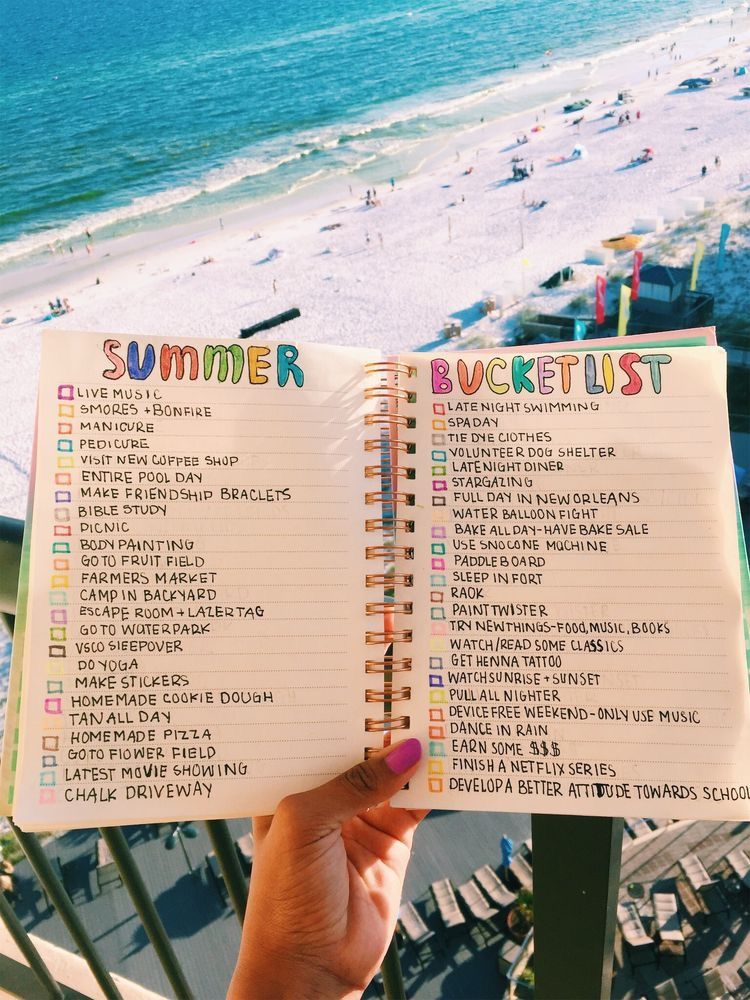 SUMMER
LIVE MUSIC
SMORES + BONFIRE
MANICURE
PEDICURE
VISIT NEW COFFEE SHOP
ENTIRE POOL DAY
MAKE FRIENDSHIP BRACLETS
BIBLE STUDY
PICNIC
BODY PAINTING
GO TO FRUIT FIELD
FARMERS MARKET
CAMP IN BACKYARD
ESCAPE ROOM + LAZER TAG
GO TO WATERPARK
VSCO SLEEPOVER
DO YOGA
MAKE STICKERS
HOMEMADE COOKIE DOUGH
TAN ALL DAY
HOMEMADE PIZZA
GO TO FLOWER FIELD
LATEST MOVIE SHOWING
CHALK DRIVEWAY
BUCKET LIST
LATE NIGHT SWIMMING
SPA DAY
TIE DYE CLOTHES
VOLUNTEER DOG SHELTER
LATE NIGHT DINER
STARGAZING
FULL DAY IN NEW ORLEANS
WATER BALLOON FIGHT
BAKE ALL DAY-HAVE BAKE SALE
USE SNOCONE MACHINE
PADDLE BOARD
SLEEP IN FORT
RAOK
PAINT TWISTER
TRY NEW THINGS-FOOD, MUSIC, BOOKS
WATCH/READ SOME CLASSICS
GET HENNA TATTOO
WATCH SUNRISE + SUNSET
PULL ALL NIGHTER
DEVICE FREE WEEKEND-ONLY USE MUSIC
DANCE IN RAIN
EARN SOME $$$
FINISH A NETFLIX SERIES
DEVELOP A BETTER ATTITUDE TOWARDS SCHOOL